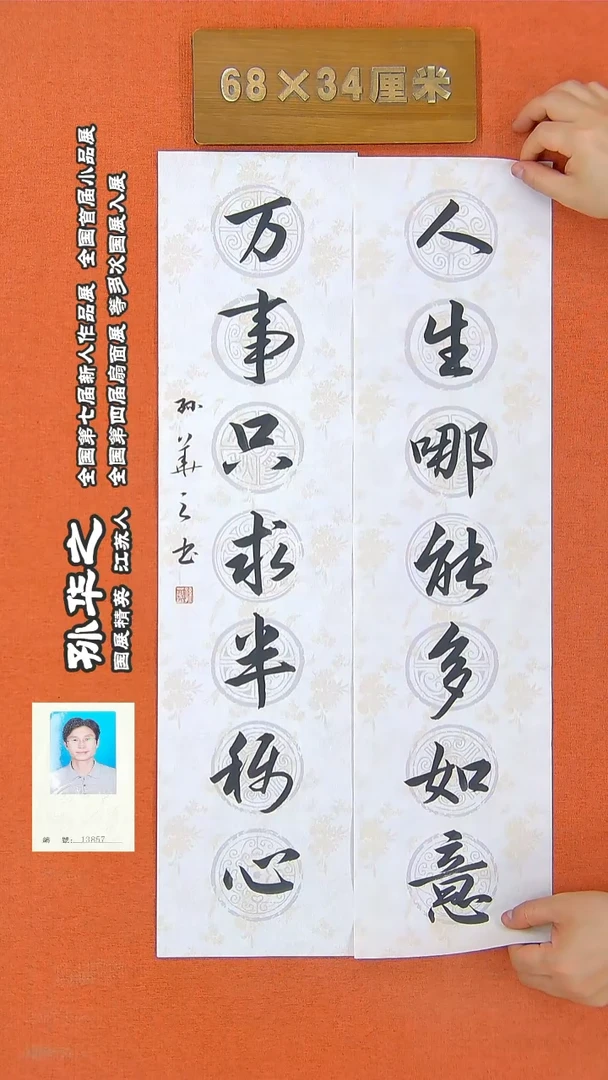 68×34厘米
人生哪能多如意
万事只求半称心
孙华之书
孙华之
国展精英 江苏人
全国第七届新人作品展 全国首届小品展
全国第四届扇面展 等多次国展入展
編號: 13857